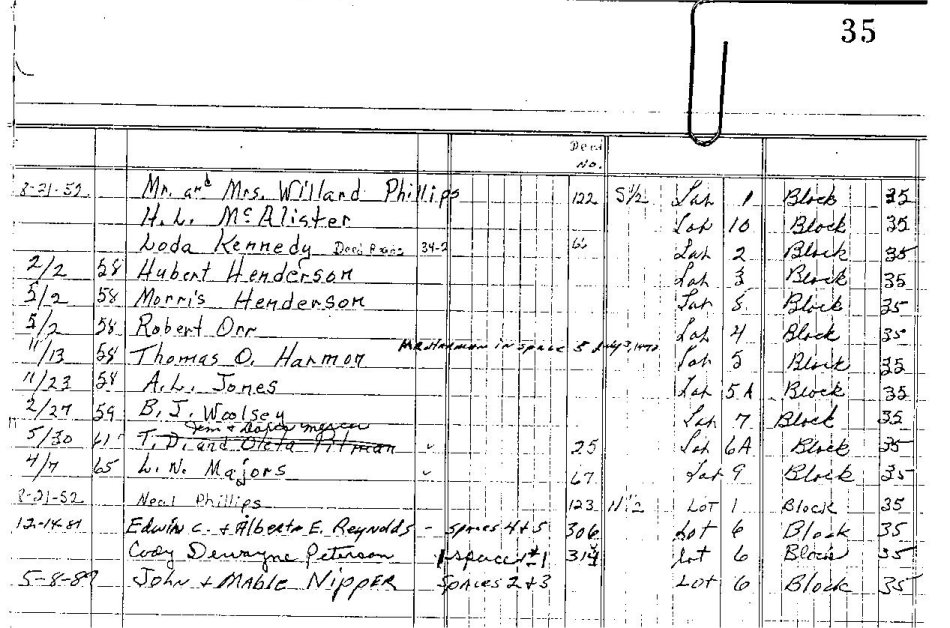 35
Deed
No.
8-21-52 Mr. and Mrs. Willard Phillips 122 S 1/2 Lot 1 Block 35
H. L. McAlister Lot 10 Block 35
Loda Kennedy Deed 34-2 Lot 2 Block 35
2/2 58 Hubert Henderson Lot 3 Block 35
5/2 58 Morris Henderson Lot 8 Block 35
5/2 58 Robert Orr Lot 4 Block 35
11/13 58 Thomas O. Harmon Mr. Harmon in space 5 Lot 5 Block 35
11/23 58 A. L. Jones Lot 5A Block 35
2/27 59 B. J. Woolsey Lot 7 Block 35
5/30 61 T. D. and Oleta Pitman 25 Lot 6A Block 35
4/7 65 L. N. Majors 67 Lot 9 Block 35
8-21-52 Neal Phillips 123 N 1/2 Lot 1 Block 35
12-14-81 Edwin C. + Alberta E. Reynolds - Spaces 4+5 306 Lot 6 Block 35
Cody Dewayne Peterson 1 space #1 314 Lot 6 Block 35
5-8-89 John + Mable Nipper Spaces 2+3 Lot 6 Block 35